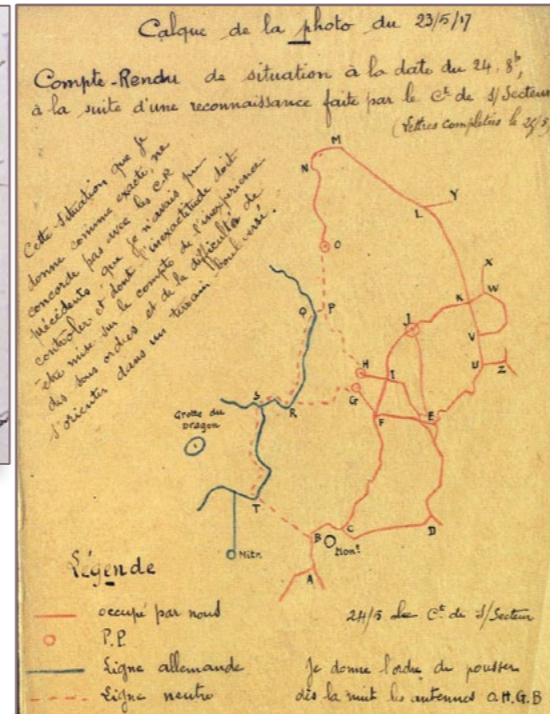 Calque de la photo du 23/5/17
Compte-Rendu de situation à la date du 24, 8h,
à la suite d'une reconnaissance faite par le Ct de S/Secteur
(Lettres complétées le 25/5)
Cette situation que je
donne comme exacte, ne
concorde pas avec les C.R
précédents que je n'avais pu
contrôler et dont l'inexactitude doit
être mise sur le compte de l'inexpérience
des sous ordres et de la difficulté de
s'orienter dans un terrain bouleversé.
M
N
L
Y
O
X
W
K
Q
P
J
V
H
I
U
Z
S
R
G
F
E
Grotte du
Dragon
T
B
C
D
Mont
Mitr.
A
Légende
occupé par nous
P.P.
Ligne allemande
Ligne neutre
24/5 Le Ct de S/Secteur
Je donne l'ordre de pousser
dès la nuit les antennes O.H.G.B